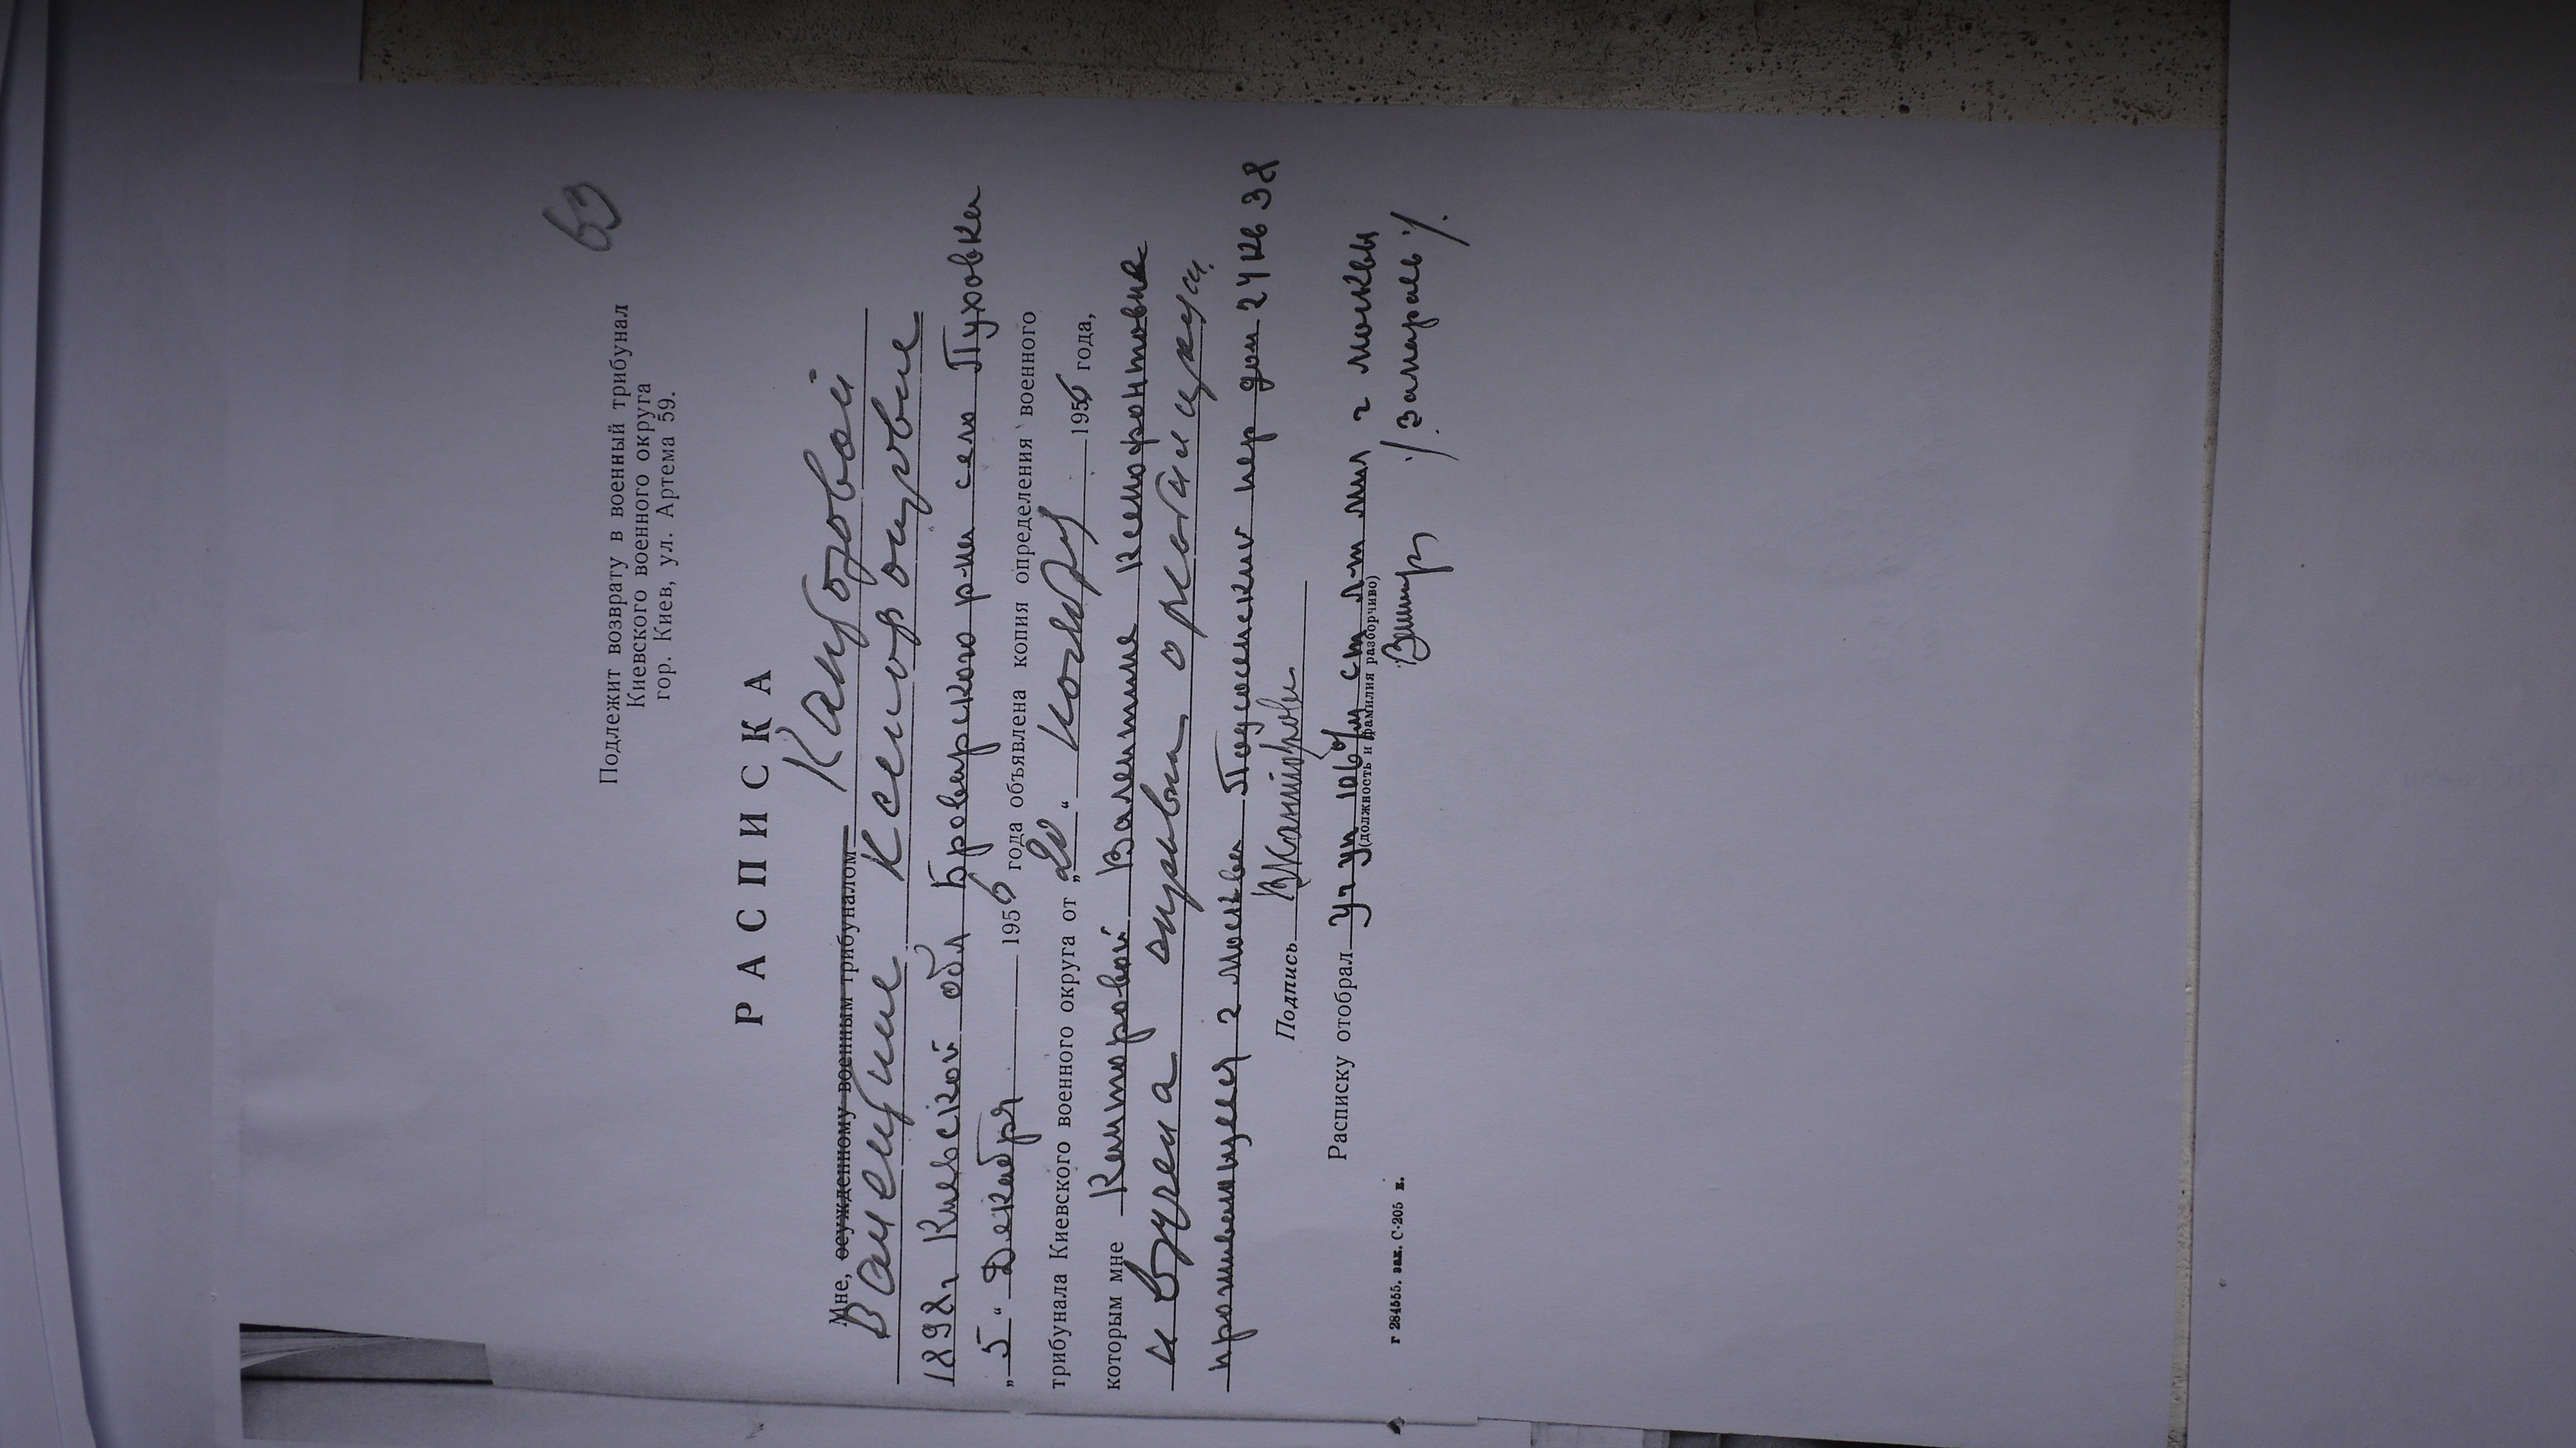 63
Подлежит возврату в военный трибунал
Киевского военного округа
гор. Киев, ул. Артема 59.
РАСПИСКА
Мне, осужденному военным трибуналом Канторовой
Валентине Ксенофонтовне
1898 г Киевской обл Броварского р-на село Пуховка
„5“ Декабря 1956 года объявлена копия определения военного
трибунала Киевского военного округа от „20“ 1956 года,
которым мне Канторовой Валентине Ксенофонтовне
и вручена справка о реабилитации
проживающей г Москва пер дом 24 кв 38
Подпись ВКанторова
Расписку отобрал Уч уп 106 о/м ст л-т мил г Москвы
(должность и фамилия разборчиво)
г 284555. зак. С-205 в.